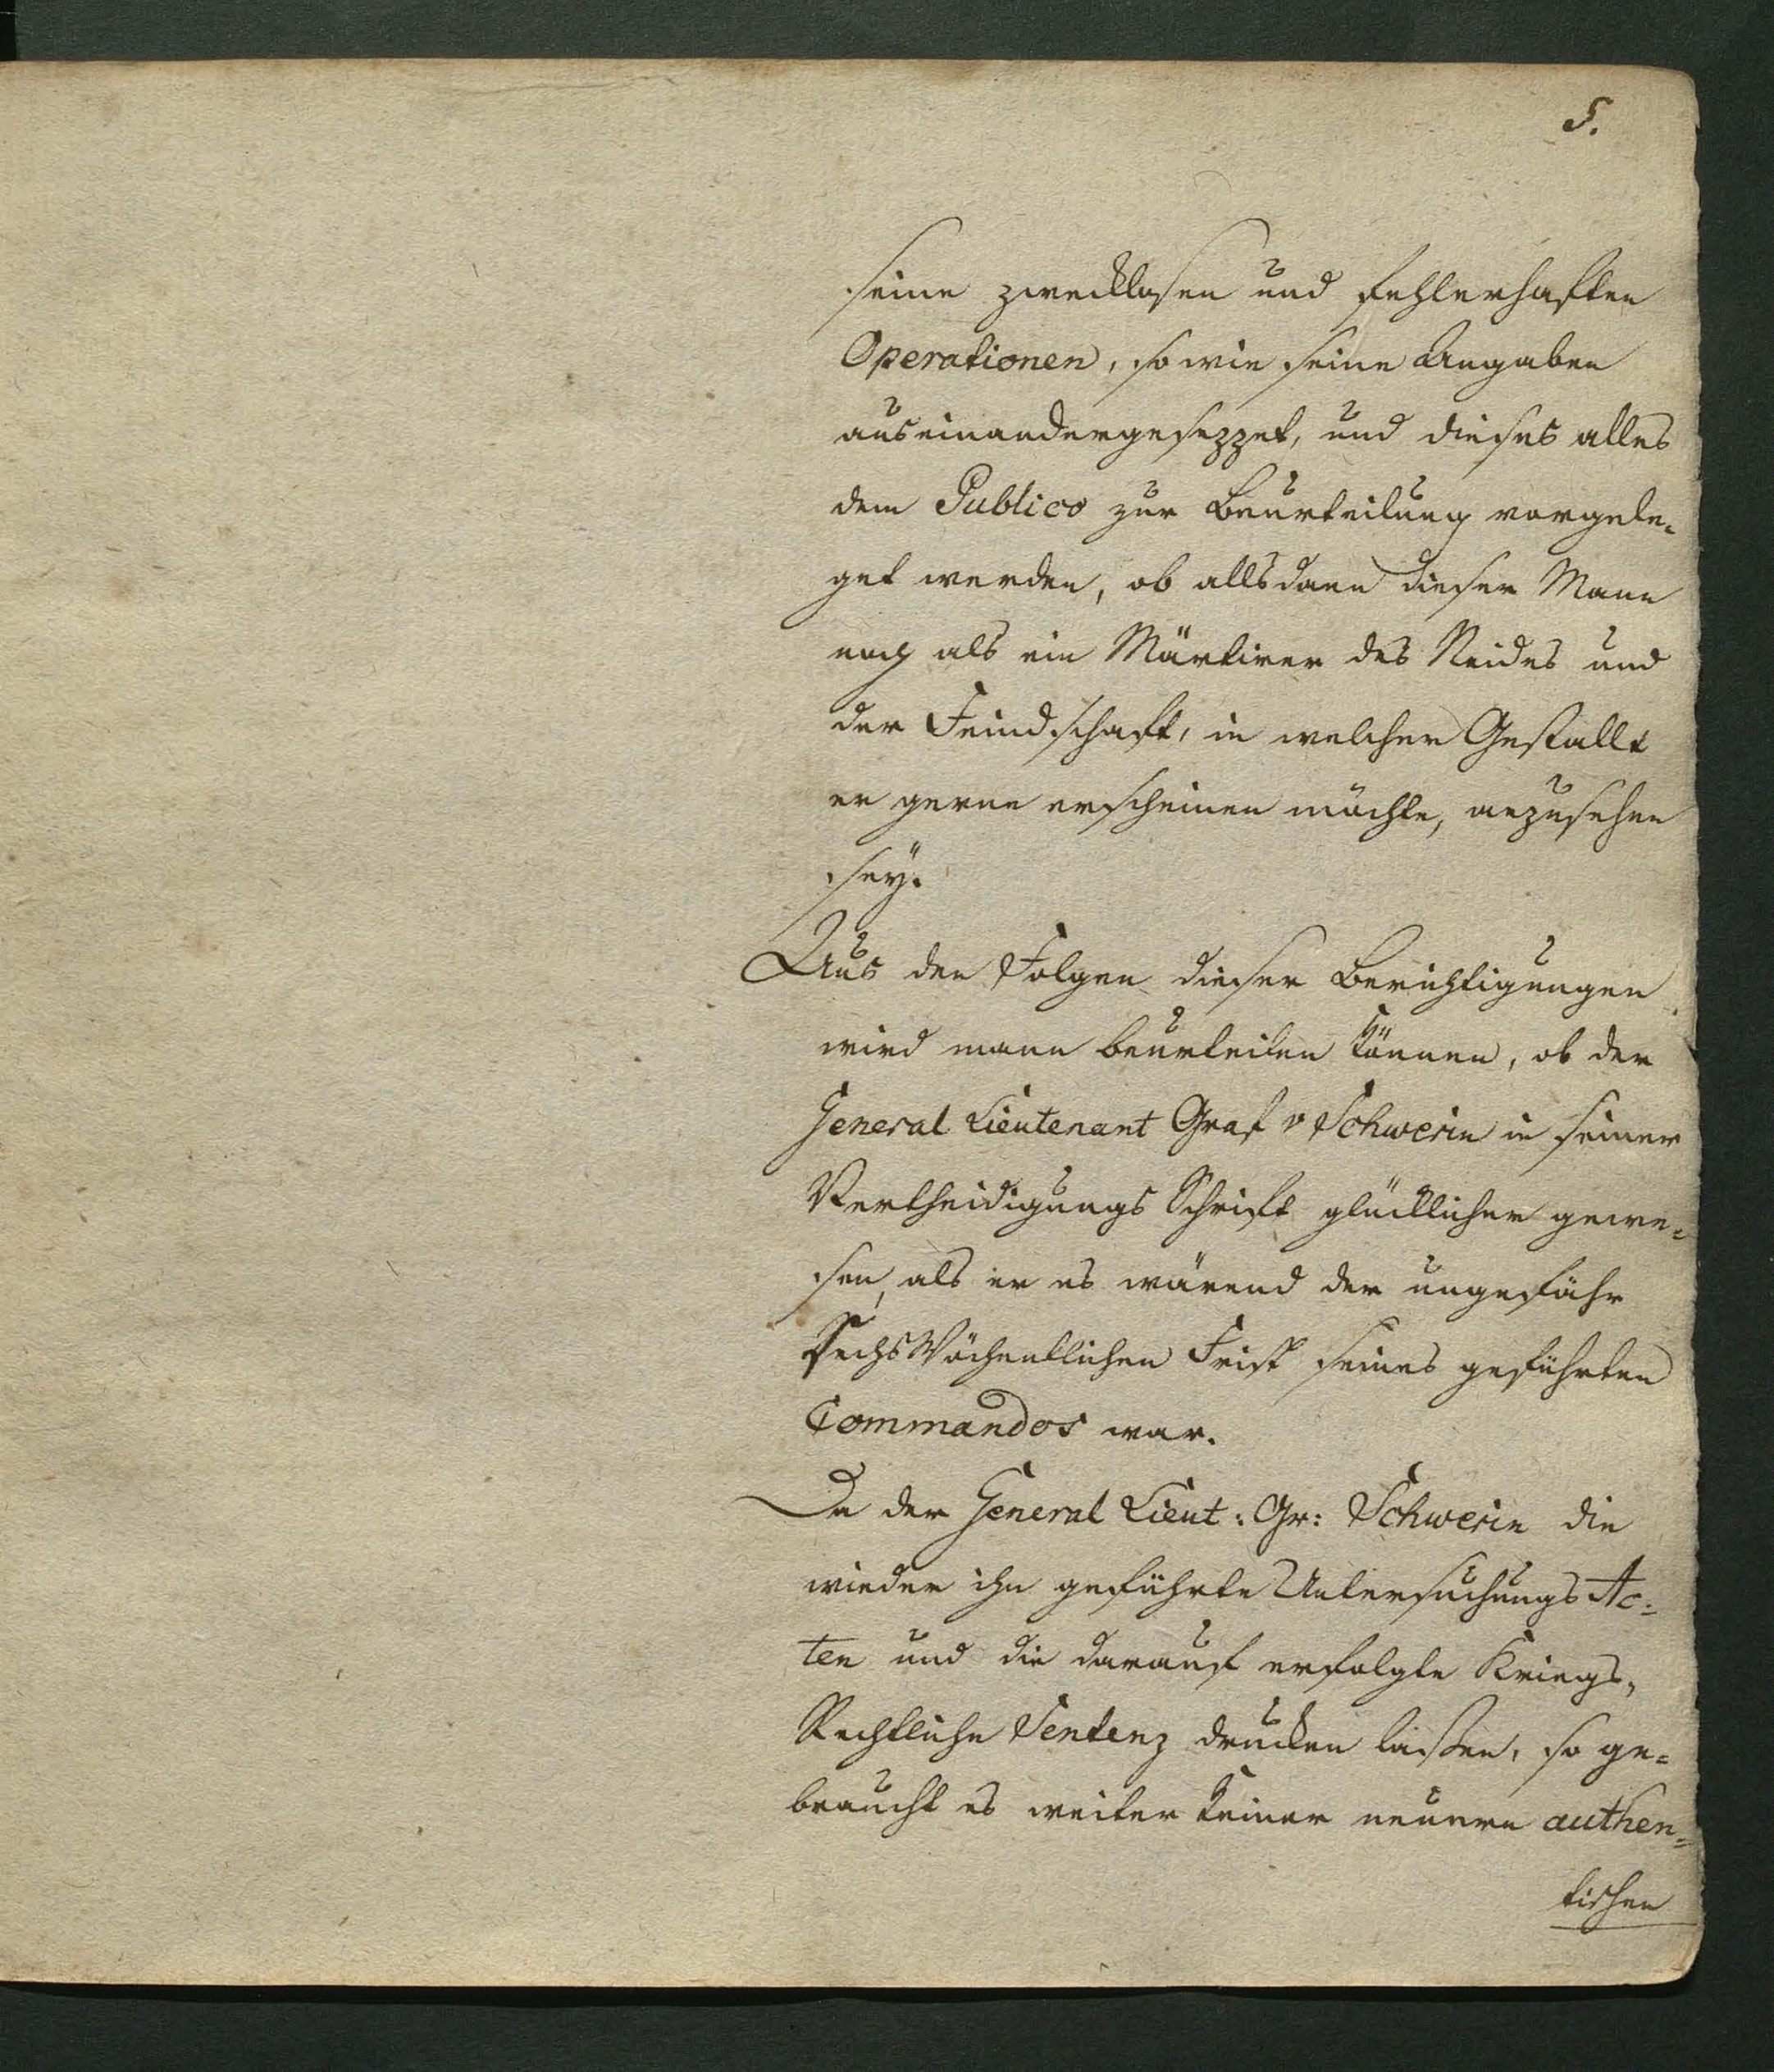 5.
seine zwecklosen und fehlerhaften
Operationen, so wie seine Angaben
auseinandergesezzet, und dieses alles
dem Publico zur Beurteilung vorgele-
get werden, ob allsdann dieser Mann
noch als ein Märtirer des Neides und
der Feindschaft, in welcher Gestallt
er gerne erscheinen möchte, anzusehen
sey.
Aus den Folgen dieser Berichtigungen
wird mann beurteilen können, ob der
General Lieutenant Graf v Schwerin in seiner
Vertheidigungs Schrift glücklicher gewe-
sen, als er es wärend der ungefähr
Sechs Wöchentlichen Frist seines geführten
Commandos war.
Da der General Lieut: Gr: Schwerin die
wieder ihn geführte Untersuchungs Ac-
ten und die darauf erfolgte Kriegs-
Rechtliche Sentenz drucken laissen, so ge-
braucht es weiter keiner neuern authen-
tischen